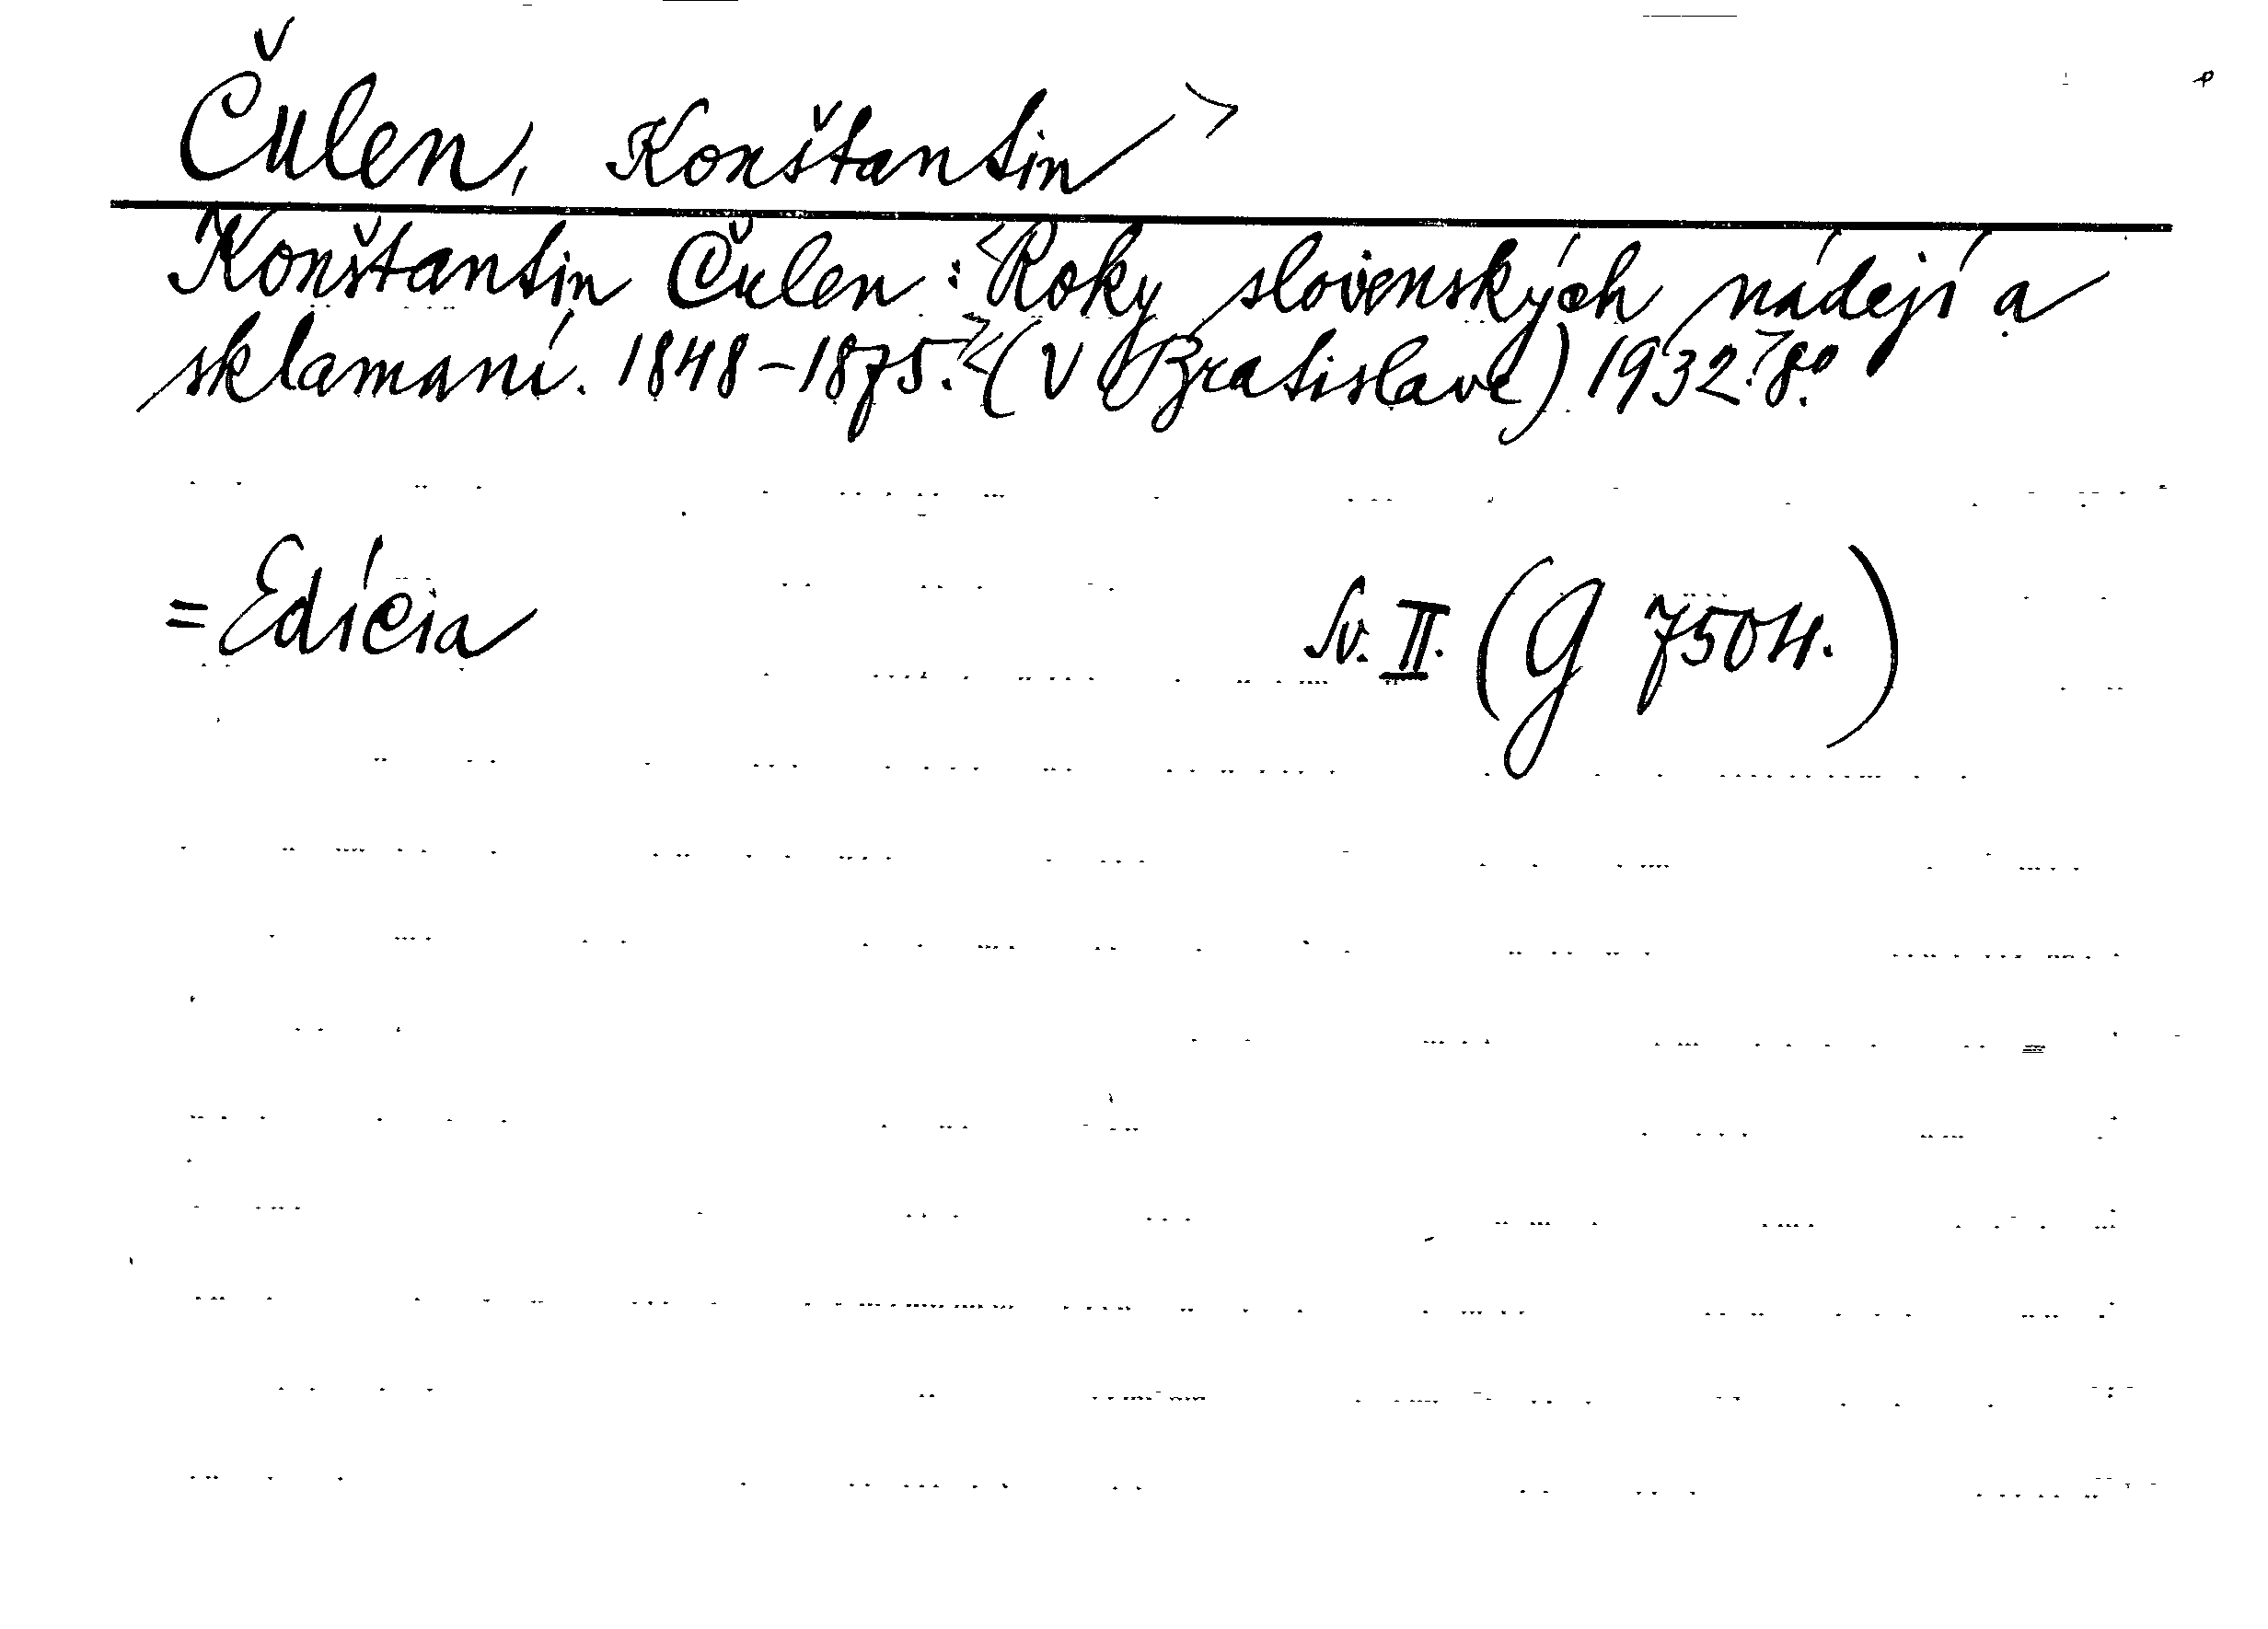 Čulen, Konštantin>
Konštantin Čulen: <Roky slovenských nádejí a
sklamaní. 1848-1875.> <(V Bratislave) 1932.> 8º.
=Edícia Sv. II. (G 7504.)